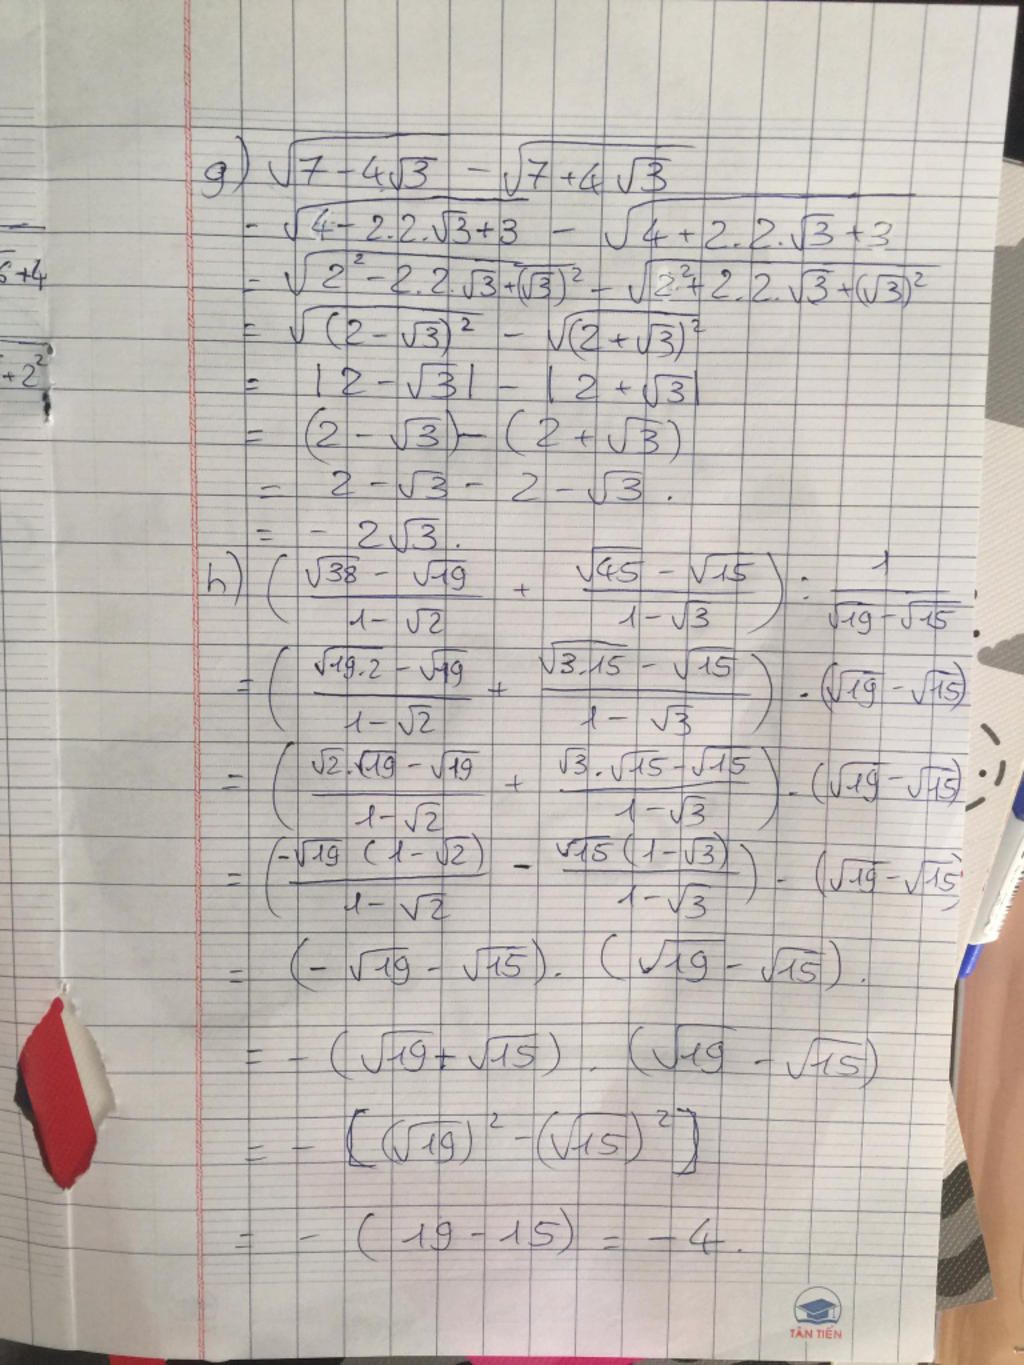 6+4
+2²
g) √(7-4√3) - √(7+4√3)
- √(4-2.2.√3+3) - √(4+2.2.√3+3)
= √(2²-2.2.√3+(√3)²) - √(2²+2.2.√3+(√3)²)
= √((2-√3)²) - √((2+√3)²)
= |2-√3| - |2+√3|
= (2-√3)-(2+√3)
= 2-√3 - 2-√3.
= - 2√3.
h) ((√38 - √19)/(1-√2) + (√45 - √15)/(1-√3)) : 1/(√19-√15)
= ((√19.2 - √19)/(1-√2) + (√3.15 - √15)/(1-√3)) . (√19-√15)
= ((√2.√19-√19)/(1-√2) + (√3.√15-√15)/(1-√3)) . (√19-√15)
= (-√19(1-√2)/(1-√2) - √15(1-√3)/(1-√3)) . (√19-√15
= (-√19-√15).(√19-√15).
= -(√19+√15).(√19-√15)
= -[(√19)²-(√15)²]
= -(19-15) = -4.
TÂN TIẾN